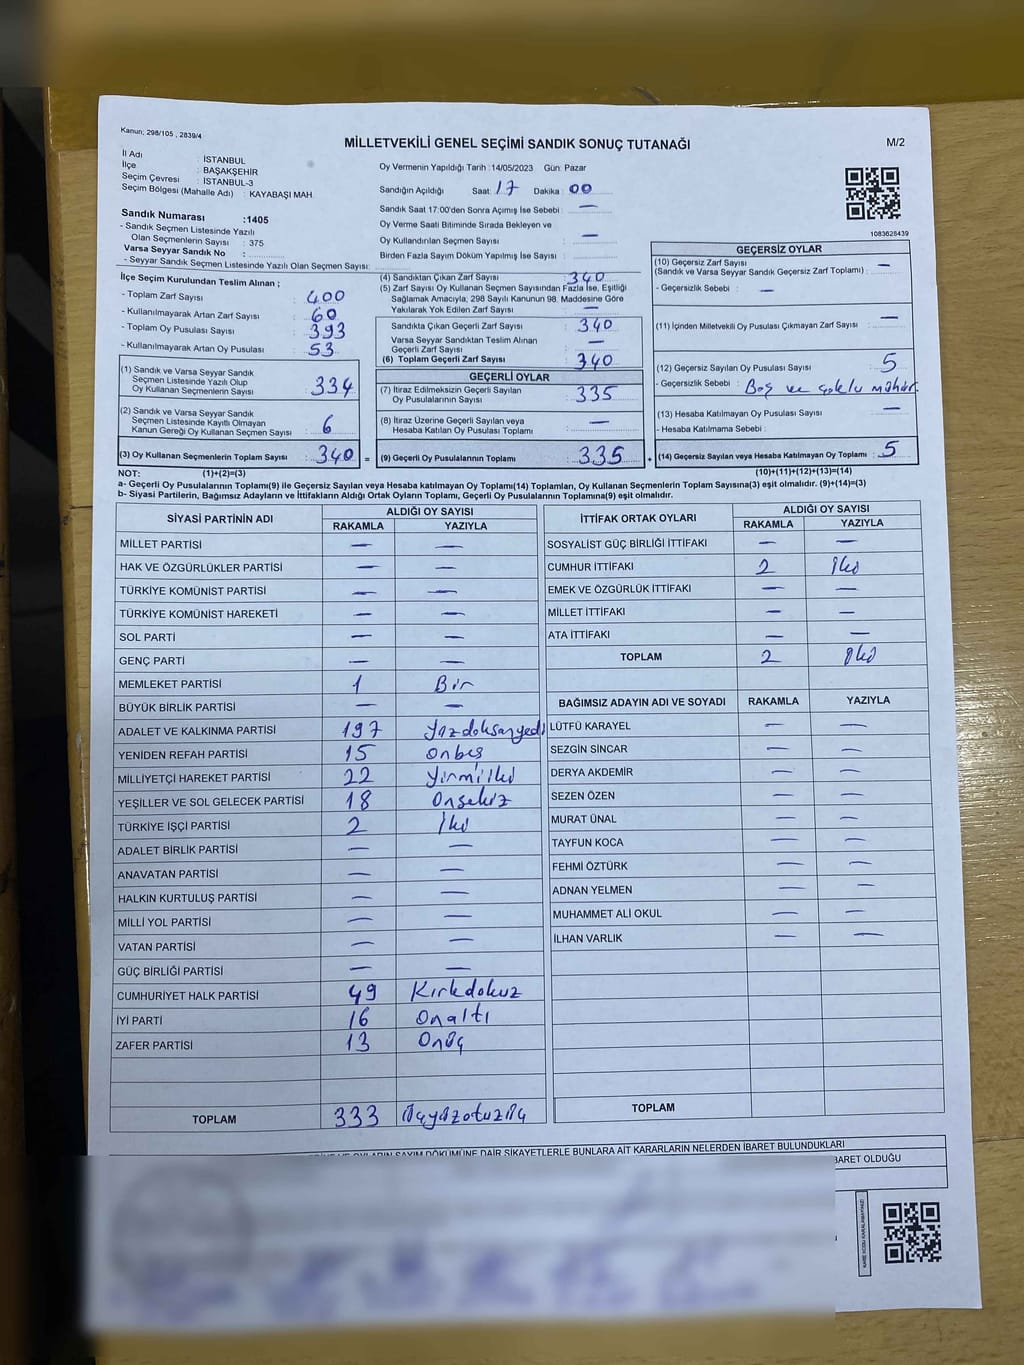 Kanun; 298/105 , 2839/4
MİLLETVEKİLİ GENEL SEÇİMİ SANDIK SONUÇ TUTANAĞI
M/2
İl Adı : İSTANBUL
İlçe : BAŞAKŞEHİR
Seçim Çevresi : İSTANBUL-3
Seçim Bölgesi (Mahalle Adı) : KAYABAŞI MAH
Sandık Numarası :1405
- Sandık Seçmen Listesinde Yazılı
Olan Seçmenlerin Sayısı : 375
Varsa Seyyar Sandık No :
- Seyyar Sandık Seçmen Listesinde Yazılı Olan Seçmen Sayısı:
Oy Vermenin Yapıldığı Tarih : 14/05/2023 Gün: Pazar
Sandığın Açıldığı Saat: 17 Dakika : 00
Sandık Saat 17:00'den Sonra Açımış İse Sebebi : —
Oy Verme Saati Bitiminde Sırada Bekleyen ve
Oy Kullandırılan Seçmen Sayısı : —
Birden Fazla Sayım Döküm Yapılmış İse Sayısı :
1083628439
İlçe Seçim Kurulundan Teslim Alınan ;
- Toplam Zarf Sayısı : 400
- Kullanılmayarak Artan Zarf Sayısı : 60
- Toplam Oy Pusulası Sayısı : 393
- Kullanılmayarak Artan Oy Pusulası : 53
(1) Sandık ve Varsa Seyyar Sandık
Seçmen Listesinde Yazılı Olup
Oy Kullanan Seçmenlerin Sayısı : 334
(2) Sandık ve Varsa Seyyar Sandık
Seçmen Listesinde Kayıtlı Olmayan
Kanun Gereği Oy Kullanan Seçmen Sayısı : 6
(3) Oy Kullanan Seçmenlerin Toplam Sayısı : 340 =
(4) Sandıktan Çıkan Zarf Sayısı : 340
(5) Zarf Sayısı Oy Kullanan Seçmen Sayısından Fazla İse, Eşitliği
Sağlamak Amacıyla, 298 Sayılı Kanunun 98. Maddesine Göre
Yakılarak Yok Edilen Zarf Sayısı :
Sandıkta Çıkan Geçerli Zarf Sayısı : 340
Varsa Seyyar Sandıktan Teslim Alınan
Geçerli Zarf Sayısı : —
(6) Toplam Geçerli Zarf Sayısı : 340
GEÇERLİ OYLAR
(7) İtiraz Edilmeksizin Geçerli Sayılan
Oy Pusulalarının Sayısı : 335
(8) İtiraz Üzerine Geçerli Sayılan veya
Hesaba Katılan Oy Pusulası Toplamı : —
(9) Geçerli Oy Pusulalarının Toplamı : 335 +
GEÇERSİZ OYLAR
(10) Geçersiz Zarf Sayısı
(Sandık ve Varsa Seyyar Sandık Geçersiz Zarf Toplamı) : —
- Geçersizlik Sebebi : —
(11) İçinden Milletvekili Oy Pusulası Çıkmayan Zarf Sayısı : —
(12) Geçersiz Sayılan Oy Pusulası Sayısı : 5
- Geçersizlik Sebebi : Boş ve çoklu mühür
(13) Hesaba Katılmayan Oy Pusulası Sayısı : —
- Hesaba Katılmama Sebebi :
(14) Geçersiz Sayılan veya Hesaba Katılmayan Oy Toplamı : 5
NOT: (1)+(2)=(3) (10)+(11)+(12)+(13)=(14)
a- Geçerli Oy Pusulalarının Toplamı(9) ile Geçersiz Sayılan veya Hesaba Katılmayan Oy Toplamı(14) Toplamları, Oy Kullanan Seçmenlerin Toplam Sayısına(3) eşit olmalıdır. (9)+(14)=(3)
b- Siyasi Partilerin, Bağımsız Adayların ve İttifakların Aldığı Ortak Oyların Toplamı, Geçerli Oy Pusulalarının Toplamına(9) eşit olmalıdır.
SİYASİ PARTİNİN ADI ALDIĞI OY SAYISI
RAKAMLA YAZIYLA
MİLLET PARTİSİ — —
HAK VE ÖZGÜRLÜKLER PARTİSİ — —
TÜRKİYE KOMÜNİST PARTİSİ — —
TÜRKİYE KOMÜNİST HAREKETİ — —
SOL PARTİ — —
GENÇ PARTİ — —
MEMLEKET PARTİSİ 1 Bir
BÜYÜK BİRLİK PARTİSİ — —
ADALET VE KALKINMA PARTİSİ 197 Yüzdoksanyedi
YENİDEN REFAH PARTİSİ 15 Onbeş
MİLLİYETÇİ HAREKET PARTİSİ 22 Yirmiiki
YEŞİLLER VE SOL GELECEK PARTİSİ 18 Onsekiz
TÜRKİYE İŞÇİ PARTİSİ 2 İki
ADALET BİRLİK PARTİSİ — —
ANAVATAN PARTİSİ — —
HALKIN KURTULUŞ PARTİSİ — —
MİLLİ YOL PARTİSİ — —
VATAN PARTİSİ — —
GÜÇ BİRLİĞİ PARTİSİ — —
CUMHURİYET HALK PARTİSİ 49 Kırkdokuz
İYİ PARTİ 16 Onaltı
ZAFER PARTİSİ 13 Onüç
TOPLAM 333 Üçyüzotuzüç
İTTİFAK ORTAK OYLARI ALDIĞI OY SAYISI
RAKAMLA YAZIYLA
SOSYALİST GÜÇ BİRLİĞİ İTTİFAKI — —
CUMHUR İTTİFAKI 2 İki
EMEK VE ÖZGÜRLÜK İTTİFAKI — —
MİLLET İTTİFAKI — —
ATA İTTİFAKI — —
TOPLAM 2 İki
BAĞIMSIZ ADAYIN ADI VE SOYADI RAKAMLA YAZIYLA
LÜTFÜ KARAYEL — —
SEZGİN SİNCAR — —
DERYA AKDEMİR — —
SEZEN ÖZEN — —
MURAT ÜNAL — —
TAYFUN KOCA — —
FEHMİ ÖZTÜRK — —
ADNAN YELMEN — —
MUHAMMET ALİ OKUL — —
İLHAN VARLIK — —
TOPLAM
VE OYLARIN SAYIM DÖKÜMÜNE DAİR ŞİKAYETLERLE BUNLARA AİT KARARLARIN NELERDEN İBARET BULUNDUKLARI
BARET OLDUĞU